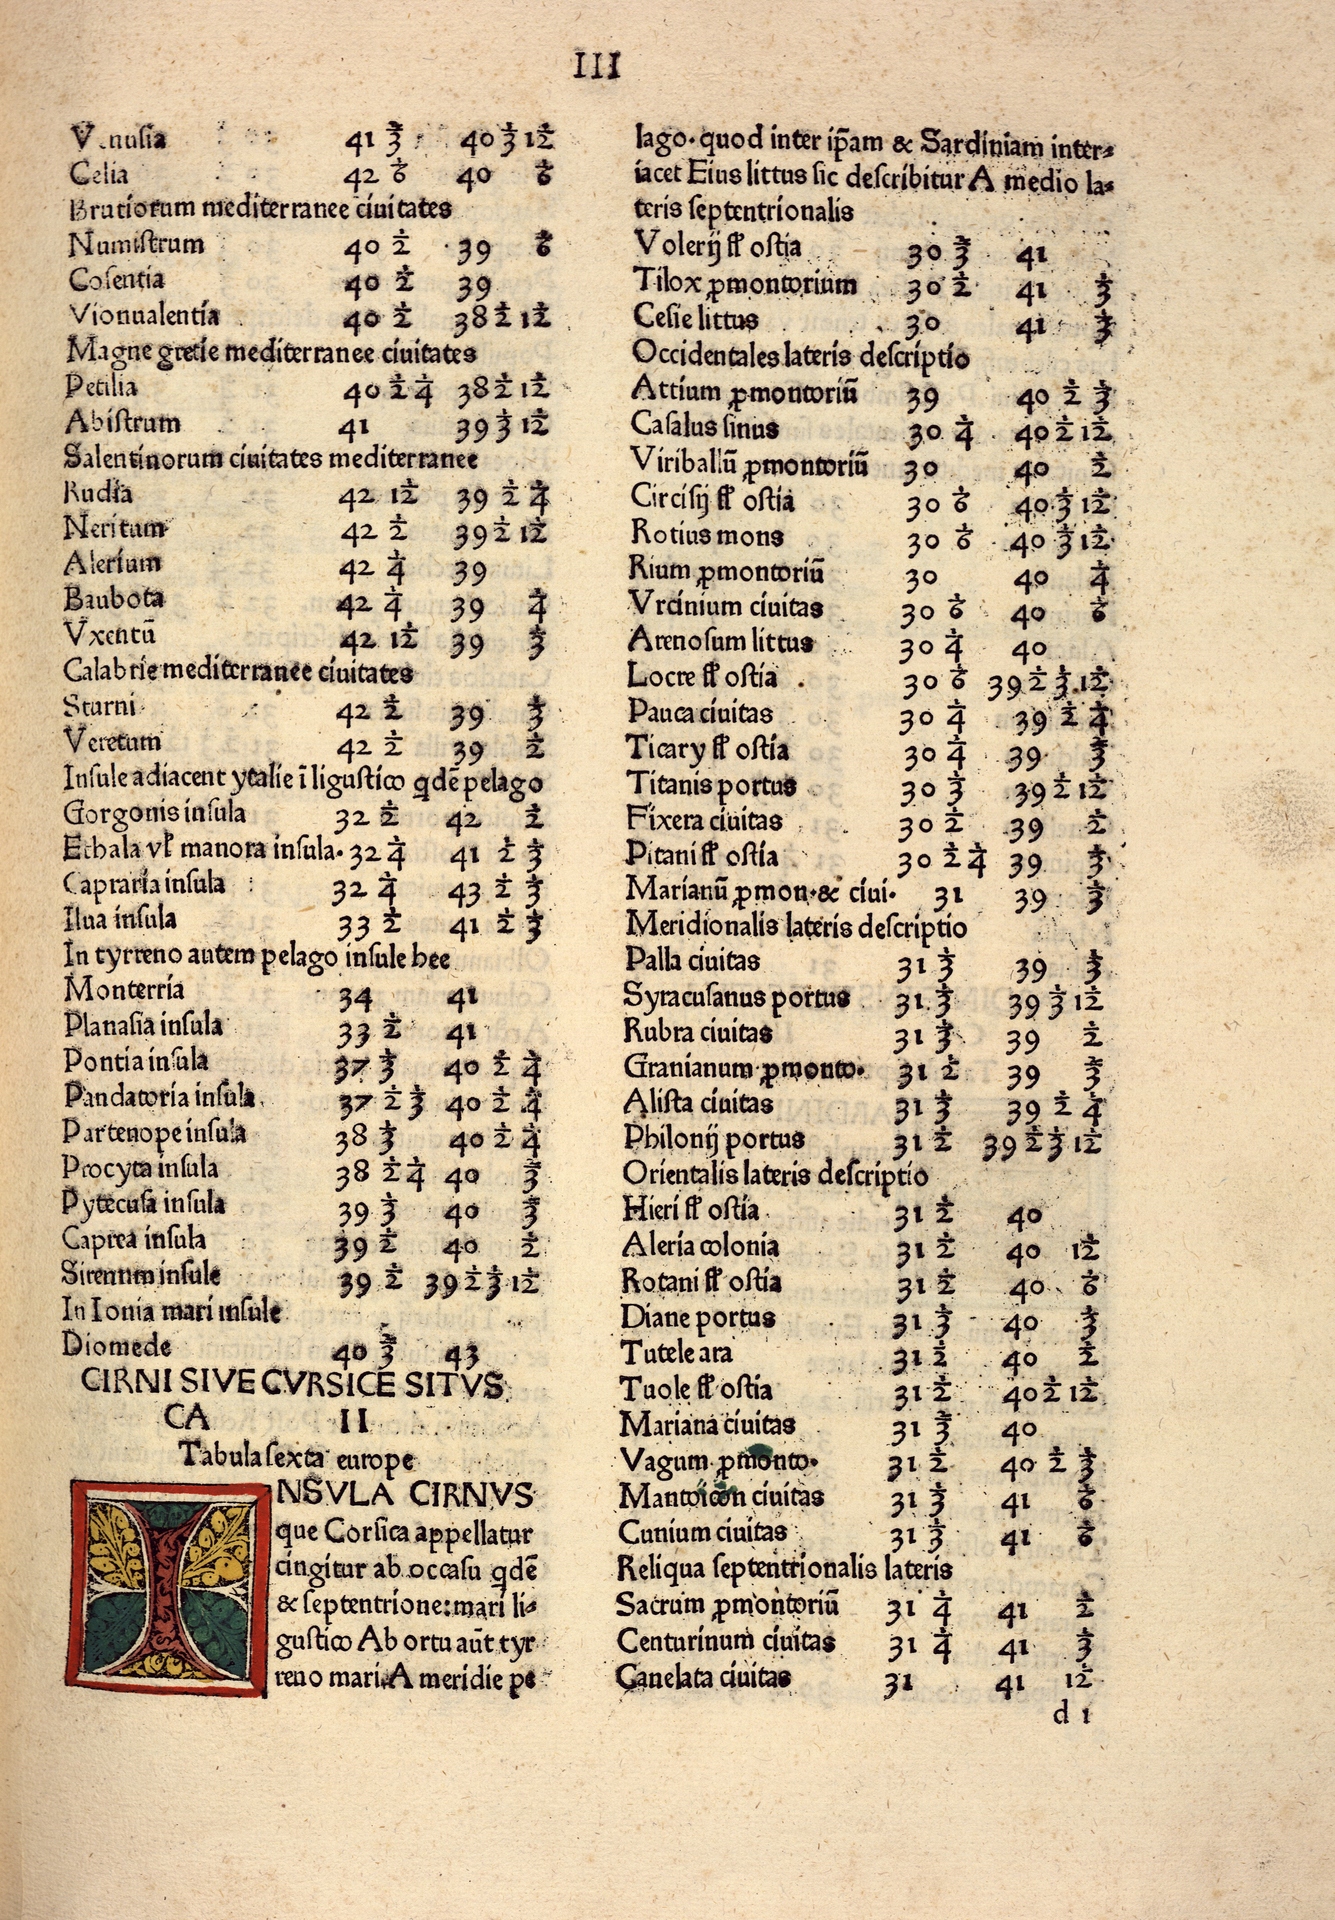 III
Venusia 41 ⅔ 40 ⅓ 1½
Celia 42 ⅙ 40 ⅙
Brutiorum mediterranee ciuitates
Numistrum 40 ½ 39 ⅙
Cosentia 40 ½ 39
Vionualentia 40 ½ 38 ½ 1½
Magne gretie mediterranee ciuitates
Petilia 40 ½ ¼ 38 ½ 1½
Abistrum 41 39 ⅓ 1½
Salentinorum ciuitates mediterranee
Rudia 42 1½ 39 ½ ¼
Neritum 42 ½ 39 ½ 1½
Alerium 42 ¼ 39
Baubota 42 ¼ 39 ¼
Vxentū 42 1½ 39 ⅓
Calabrie mediterranee ciuitates
Sturni 42 ½ 39 ⅓
Veretum 42 ½ 39 ½
Insule adiacent ytalie ī ligustico qdē pelago
Gorgonis insula 32 ½ 42 ½
Ethala vł manora insula. 32 ¼ 41 ½ ⅓
Capraria insula 32 ¼ 43 ½ ⅓
Ilua insula 33 ½ 41 ½ ⅓
In tyrreno autem pelago insule hee
Monterria 34 41
Planasia insula 33 ½ 41
Pontia insula 37 ⅓ 40 ½ ¼
Pandatoria insula. 37 ½ ⅓ 40 ½ ¼
Partenope insula 38 ⅓ 40 ½ ¼
Procyta insula 38 ½ ¼ 40 ⅔
Pytecusa insula 39 ⅓ 40 ⅔
Caprea insula 39 ½ 40 ½
Sirenum insule 39 ½ 39 ½ ⅓ 1½
In Ionia mari insule
Diomede 40 ⅔ 43
CIRNI SIVE CVRSICE SITVS
CA II
Tabula sexta europe
INSVLA CIRNVS
que Corsica appellatur
cingitur ab occasu qdē
& septentrione: mari li⸗
gustico Ab ortu aūt tyr
reno mari. A meridie pe
lago. quod inter ip̄am & Sardiniam inter⸗
iacet Eius littus sic describitur A medio la⸗
teris septentrionalis
Volerij fł ostia 30 ⅔ 41
Tilox ꝓmontorium 30 ½ 41 ⅓
Cesie littus 30 41 ⅓
Occidentales lateris descriptio
Attium ꝓmontoriū 39 40 ½ ⅓
Casalus sinus 30 ¼ 40 ½ 1½
Viriballū ꝓmontoriū 30 40 ½
Circisij fł ostia 30 ⅙ 40 ⅓ 1½
Rotius mons 30 ⅙ 40 ⅓ 1½
Rium ꝓmontoriū 30 40 ¼
Vrcinium ciuitas 30 ⅙ 40 ⅙
Arenosum littus 30 ¼ 40
Locre fł ostia . 30 ⅙ 39 ½ ⅓ 1½
Pauca ciuitas 30 ¼ 39 ½ ¼
Ticary fł ostia 30 ¼ 39 ⅔
Titanis portus 30 ⅓ 39 ½ 1½
Fixera ciuitas 30 ½ 39 ½
Pitani fł ostia 30 ½ ¼ 39 ⅓
Marianū ꝓmon. & ciui. 31 39 ⅓
Meridionalis lateris descriptio
Palla ciuitas 31 ⅓ 39 ⅓
Syracusanus portus 31 ⅓ 39 ⅓ 1½
Rubra ciuitas 31 ⅓ 39 ½
Granianum ꝓmonto. 31 ½ 39 ⅔
Alista ciuitas 31 ⅔ 39 ½ ¼
Philonij portus 31 ½ 39 ½ ⅓ 1½
Orientalis lateris descriptio
Hieri fł ostia 31 ½ 40
Aleria colonia 31 ½ 40 1½
Rotani fł ostia 31 ½ 40 ⅙
Diane portus 31 ⅓ 40 ⅓
Tutele ara 31 ½ 40 ½
Tuole fł ostia 31 ½ 40 ½ 1½
Mariana ciuitas 31 ⅔ 40
Vagum ꝓmonto. 31 ½ 40 ½ ⅓
Mantoicon ciuitas 31 ⅓ 41 ⅙
Cunium ciuitas 31 ⅓ 41 ⅙
Reliqua septentrionalis lateris
Sacrum ꝓmontoriū 31 ¼ 41 ½
Centurinum ciuitas 31 ¼ 41 ⅓
Canelata ciuitas 31 41 1½
d 1